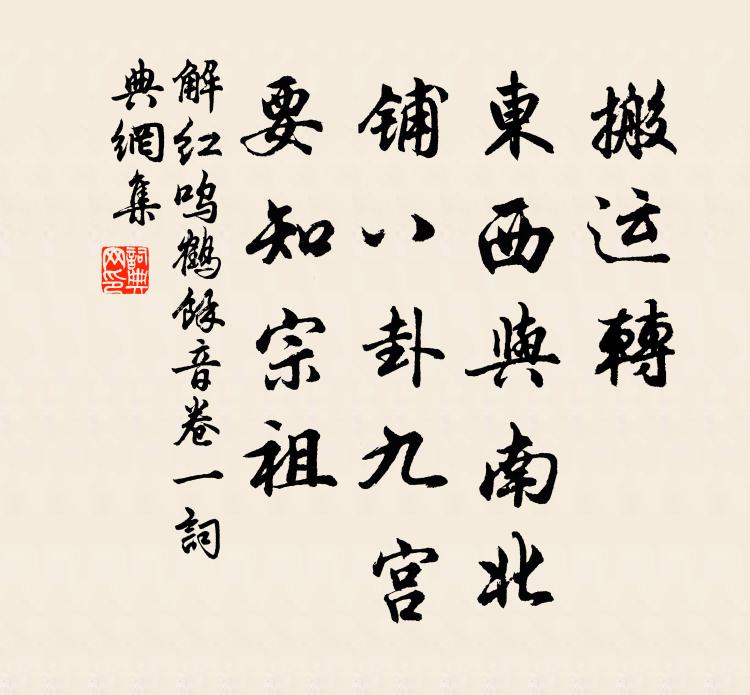 搬运轉
東西與南北
铺八卦九宫
要知宗祖
解红鸣鶴餘音卷一詞
典網集
詞典
网印